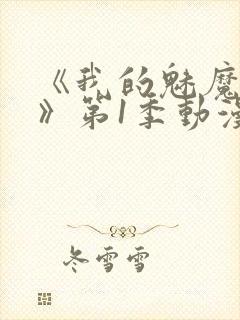 《我的魅魔
》第1季動漫
冬雪雪